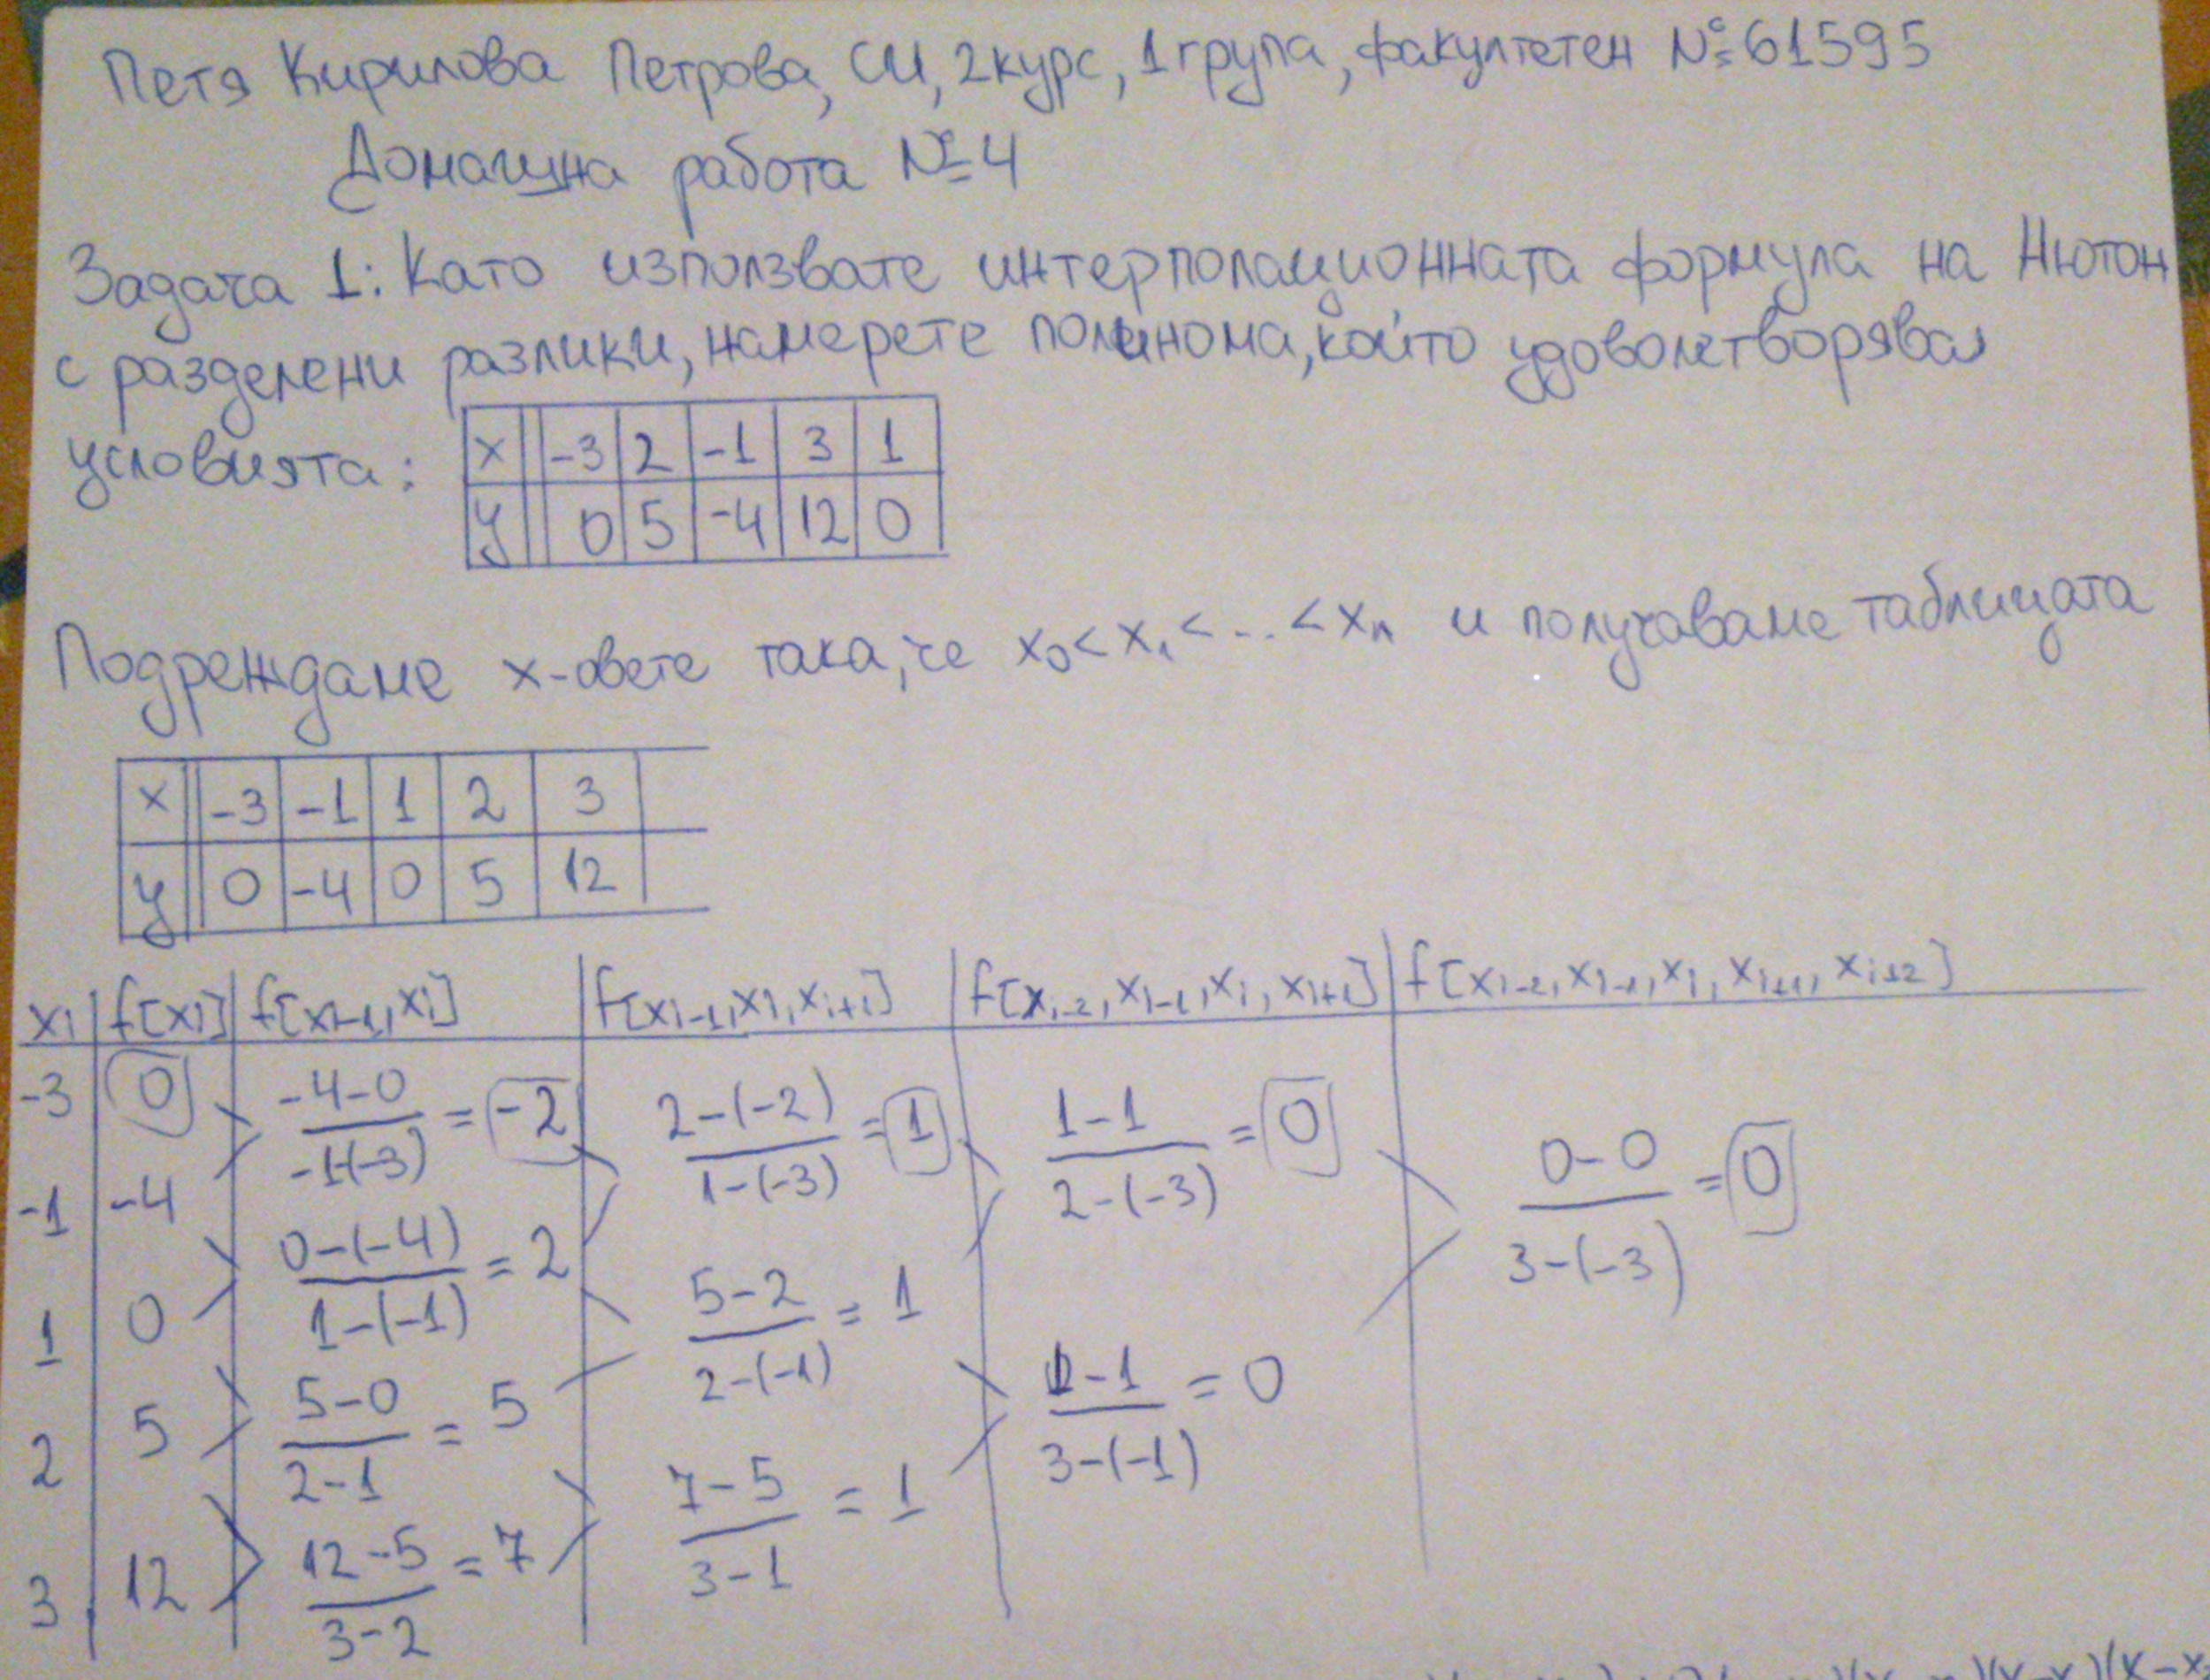 Петя Кирилова Петрова, СИ, 2 курс, 1 група, факултетен №61595
Домашна работа №4
Задача 1: Като използвате интерполационната формула на Нютон
с разделени разлики, намерете полинома, който удовлетворява
условията:
x | -3 | 2 | -1 | 3 | 1
y | 0 | 5 | -4 | 12 | 0
Подреждаме x-овете така, че x₀ < x₁ < ... < xₙ и получаваме таблицата
x | -3 | -1 | 1 | 2 | 3
y | 0 | -4 | 0 | 5 | 12
xᵢ | f[xᵢ] | f[xᵢ₋₁, xᵢ] | f[xᵢ₋₁, xᵢ, xᵢ₊₁] | f[xᵢ₋₂, xᵢ₋₁, xᵢ, xᵢ₊₁] | f[xᵢ₋₂, xᵢ₋₁, xᵢ, xᵢ₊₁, xᵢ₊₂]
-3 | 0 | (-4-0)/(-1-(-3)) = -2 | (2-(-2))/(1-(-3)) = 1 | (1-1)/(2-(-3)) = 0 | (0-0)/(3-(-3)) = 0
-1 | -4 | (0-(-4))/(1-(-1)) = 2 | (5-2)/(2-(-1)) = 1 | (1-1)/(3-(-1)) = 0
1 | 0 | (5-0)/(2-1) = 5 | (7-5)/(3-1) = 1
2 | 5 | (12-5)/(3-2) = 7
3 | 12